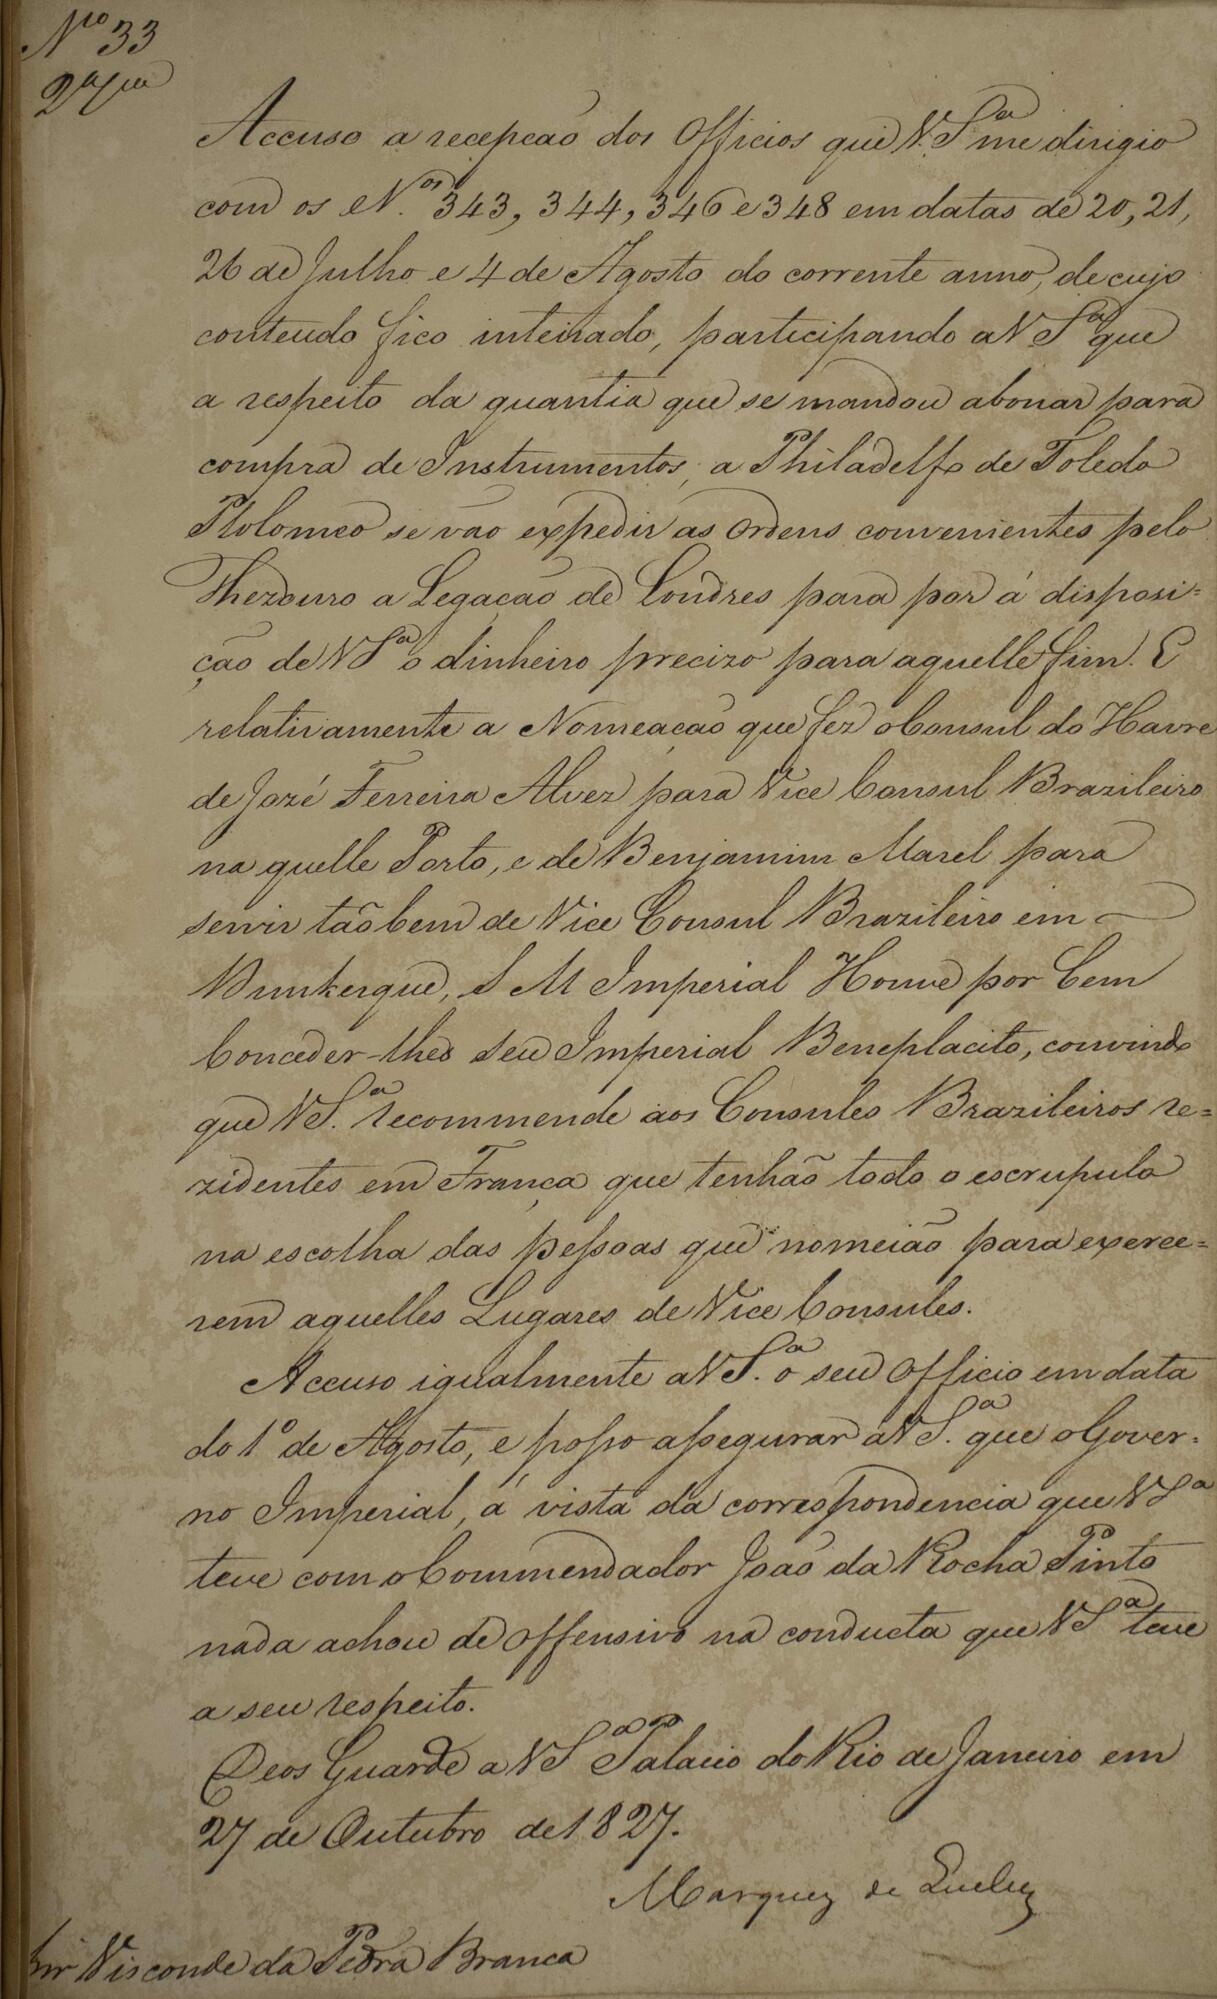 Nº 33
2ª via
Accuso a recepção dos Officios que V. Sª me dirigio
com os N.os 343, 344, 346 e 348 em datas de 20, 21,
26 de Julho e 4 de Agosto do corrente anno, de cujo
conteudo fico inteirado, participando a V Sª que
a respeito da quantia que se mandou abonar para
compra de Instrumentos, a Philadelfo de Toledo
Ptolomeo se vão expedir as Ordens convenientes pelo
Thezouro a Legação de Londres para por á disposi=
ção de V Sª o dinheiro precizo para aquelle fim. E
relativamente a Nomeação que fez o Consul do Havre
de Jozé Ferreira Alvez para Vice Consul Brazileiro
na quelle Porto, e de Benjamim Marel para
servir tãobem de Vice Consul Brazileiro em
Dunkerque, S M Imperial Houve por bem
Conceder-lhes Seu Imperial Beneplacito, convindo
que V S.ª recommende aos Consules Brazileiros re=
zidentes em França que tenhão todo o escrupulo
na escolha das pessoas que nomeião para exerce=
rem aquelles Lugares de Vice Consules.
Accuso igualmente a V S.ª o seu Officio em data
do 1º de Agosto, e posso assegurar á V S.ª que o Gover=
no Imperial, á vista da correspondencia que V Sª
teve com o Commendador João da Rocha Pinto
nada achou de offensivo na conducta que V Sª teve
a seu respeito.
Deos Guarde a V Sª Palacio do Rio de Janeiro em
27 de Outubro de 1827.
Marquez de Queluz
Snr Visconde da Pedra Branca